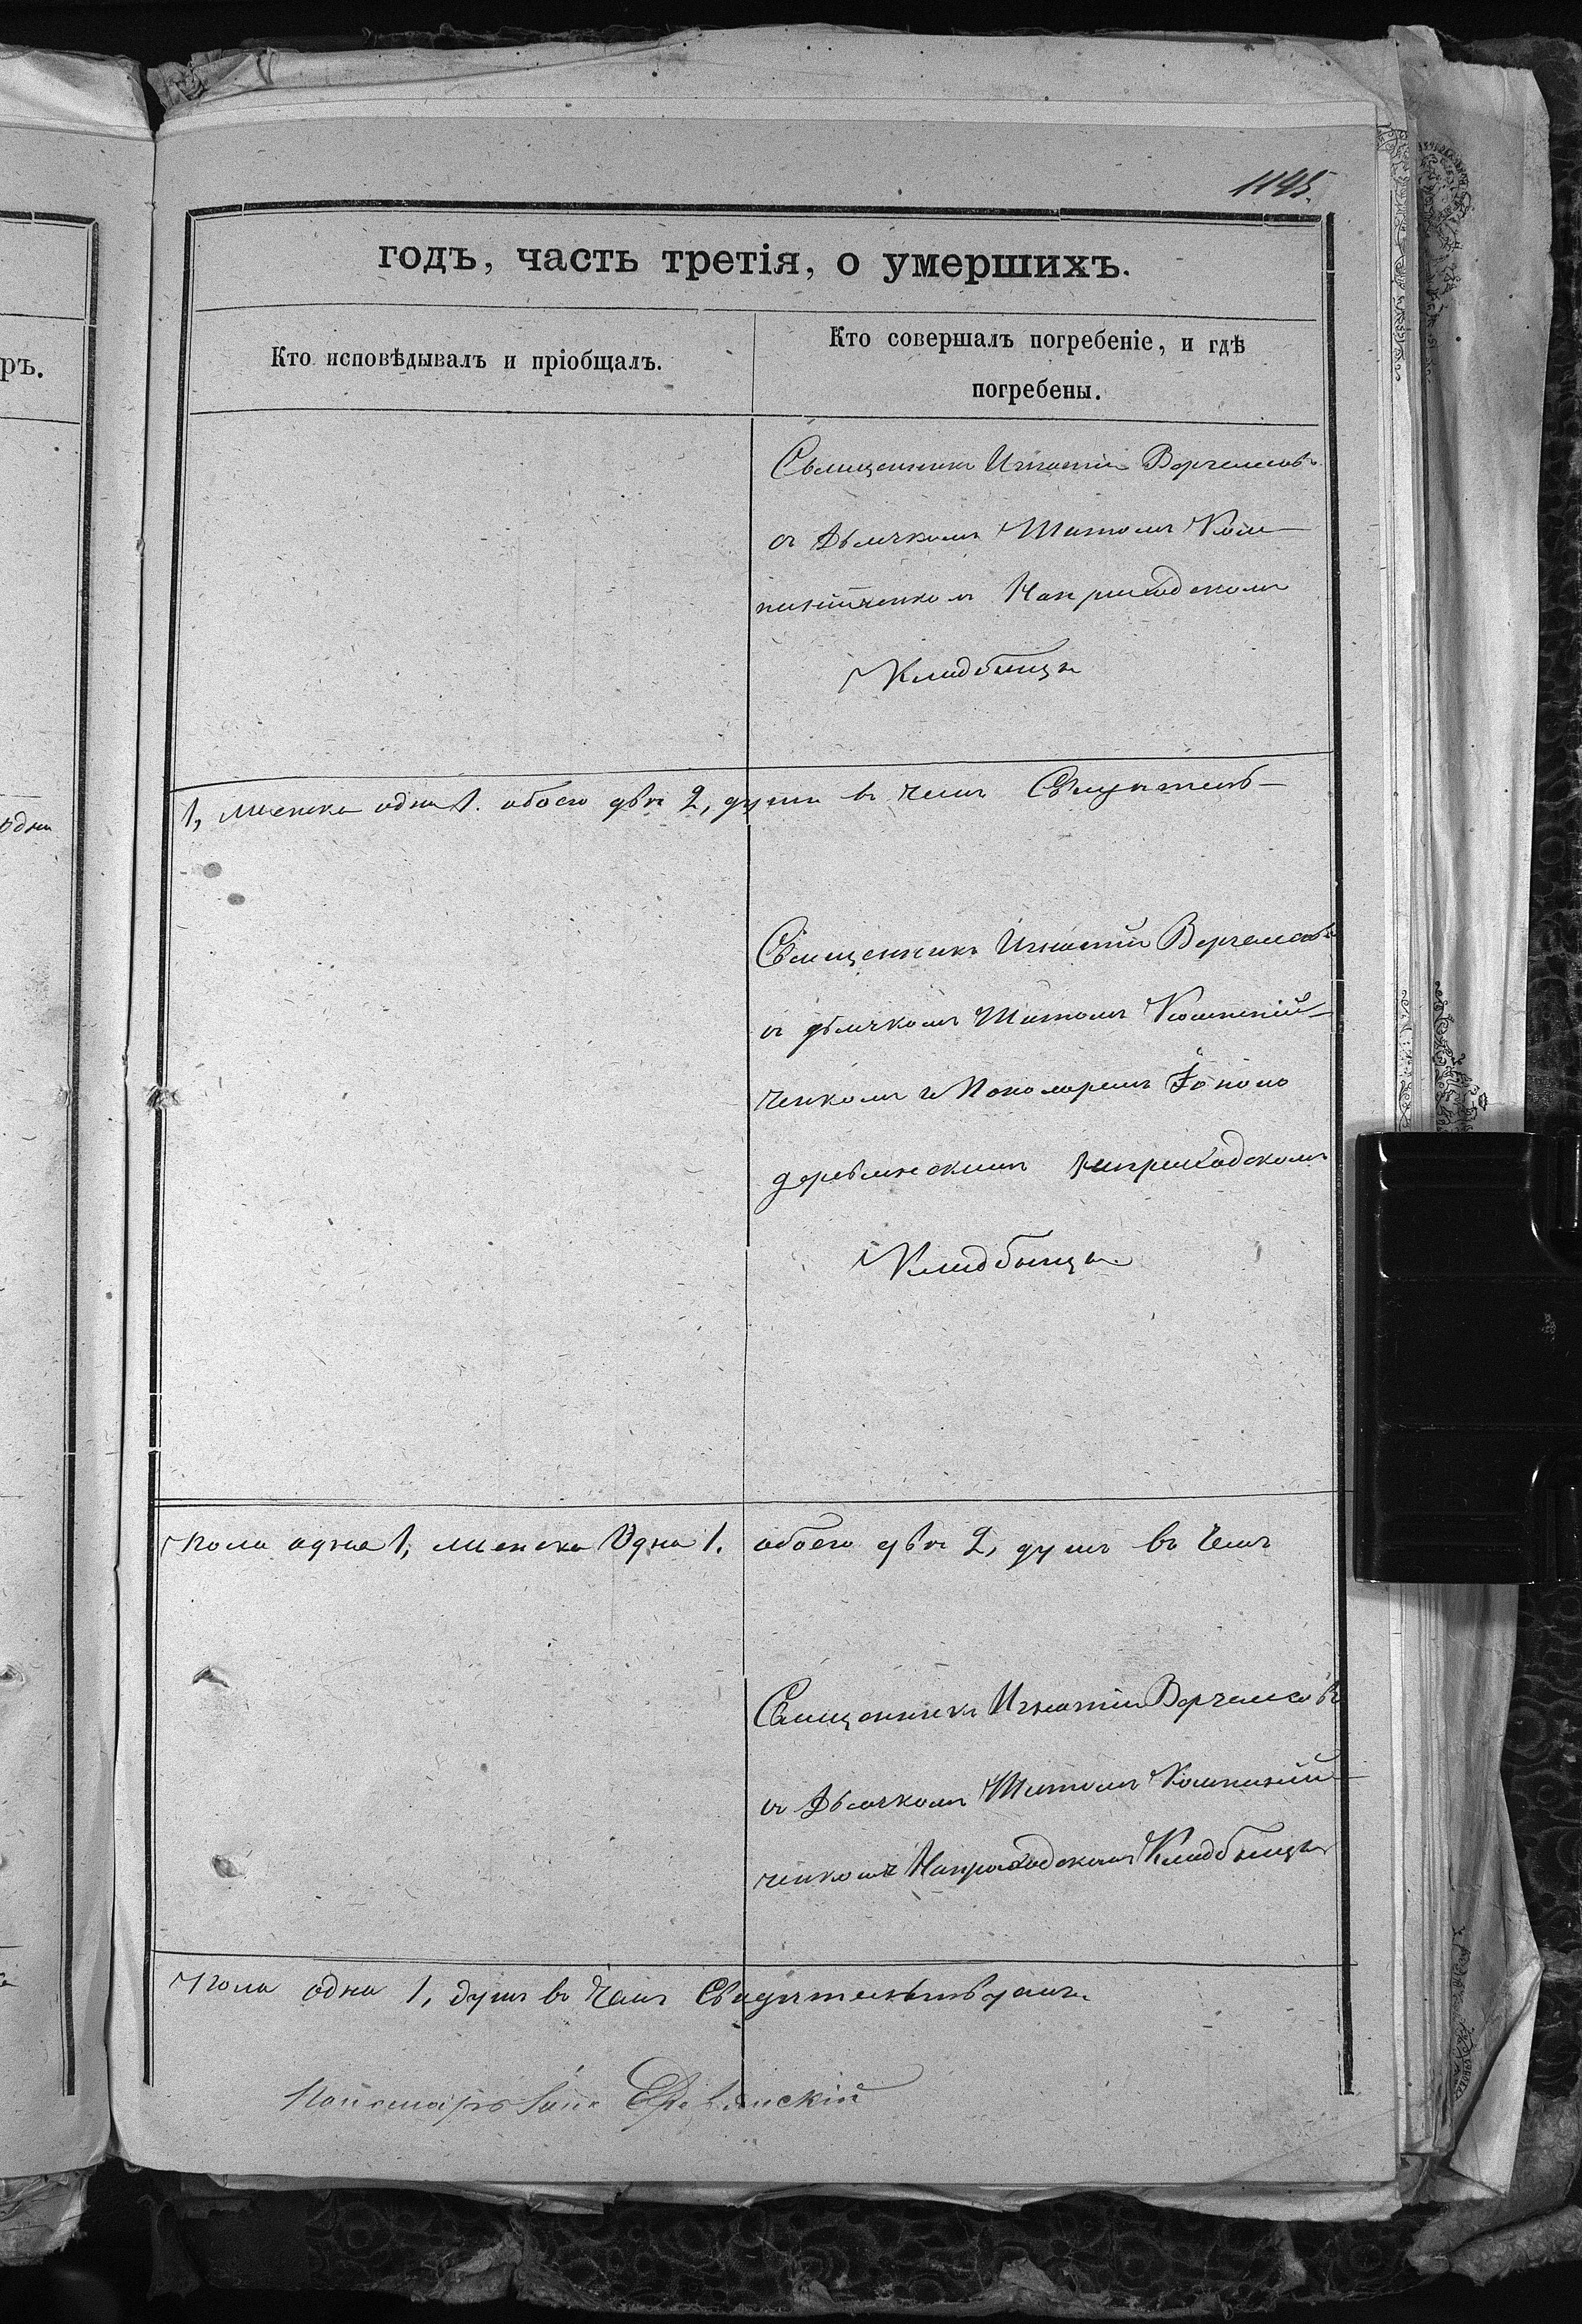 1145.
годъ, часть третія, о умершихъ.
Кто исповѣдывалъ и пріобщалъ.
Кто совершалъ погребеніе, и гдѣ
погребены.
ръ.
Священникъ Игнатій
съ Дьячкомъ Титомъ Ком
Наприходскомъ
Кладбищѣ
одна
1, женска одна 1. обоего двѣ 2, душъ въ чемъ Свидѣтель-
Священникъ Игнатій
съ дьячкомъ Титомъ Компаній-
ченкомъ и Пономаремъ Іоною
деревянскимъ наприходскомъ
Кладбищѣ.
пола одна 1, женска Одна 1. обоего двѣ 2, душъ въ чемъ
Священникъ Игнатій
съ Дьячкомъ Титомъ Компаній-
ченкомъ Наприходскомъ Кладбищѣ
пола одна 1, душъ въ Чемъ Свидѣтельствуемъ.
Пономарь